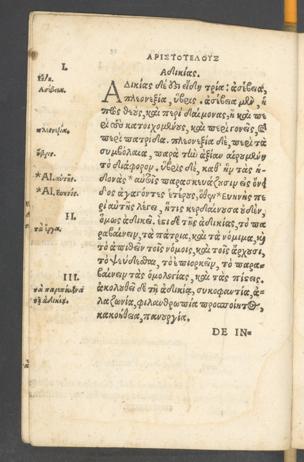 ΑΡΙΣΤΟΤΕΛΟΥΣ
Αδικίας.
I.
Αδικίας δέ ἐστιν εἴδη τρία: ἀσέβεια,
εἴδη.
Ασέβεια.
πλεονεξία, ὕβρις. ἀσέβεια μὲν, ἡ
πρὸς θεοὺς, καὶ περὶ δαίμονας, ἢ καὶ πε
ρὶ τοὺς κατοιχομένους, καὶ περὶ γονεῖς, καὶ
πλεονεξία.
περὶ πατρίδα. πλεονεξία δὲ, περὶ τὰ
συμβόλαια, παρὰ τὴν ἀξίαν αἱρουμένη
ὕβρις.
τὸ διάφορον. ὕβρις δὲ, καθ' ἣν τὰς ἡ-
*Al.
δονὰς *αὐτοῖς παρασκευάζουσιν εἰς ὄνει
*Al.
δος ἄγοντες ἑτέρους, ὅθεν *Εὔηνος πε
ρὶ αὐτῆς λέγει, ἥτις κερδαίνουσα οὐδὲν,
II.
ὅμως ἀδικεῖ. ἔστι δὲ τῆς ἀδικίας, τὸ πα-
τὰ ἔργα.
ραβαίνειν τὰ πάτρια, καὶ τὰ νόμιμα, καὶ
τὸ ἀπειθεῖν τοῖς νόμοις, καὶ τοῖς ἄρχουσι,
τὸ ψεύδεσθαι, τὸ ἐπιορκεῖν, τὸ παρα-
βαίνειν τὰς ὁμολογίας, καὶ τὰς πίστεις.
III.
ἀκολουθεῖ δὲ τῇ ἀδικίᾳ, συκοφαντία, ἀ-
τὰ παρεπόμενα
τῇ ἀδικίᾳ.
λαζωνία, φιλανθρωπία προσποίητος,
κακοήθεια, πανουργία.
DE IN-